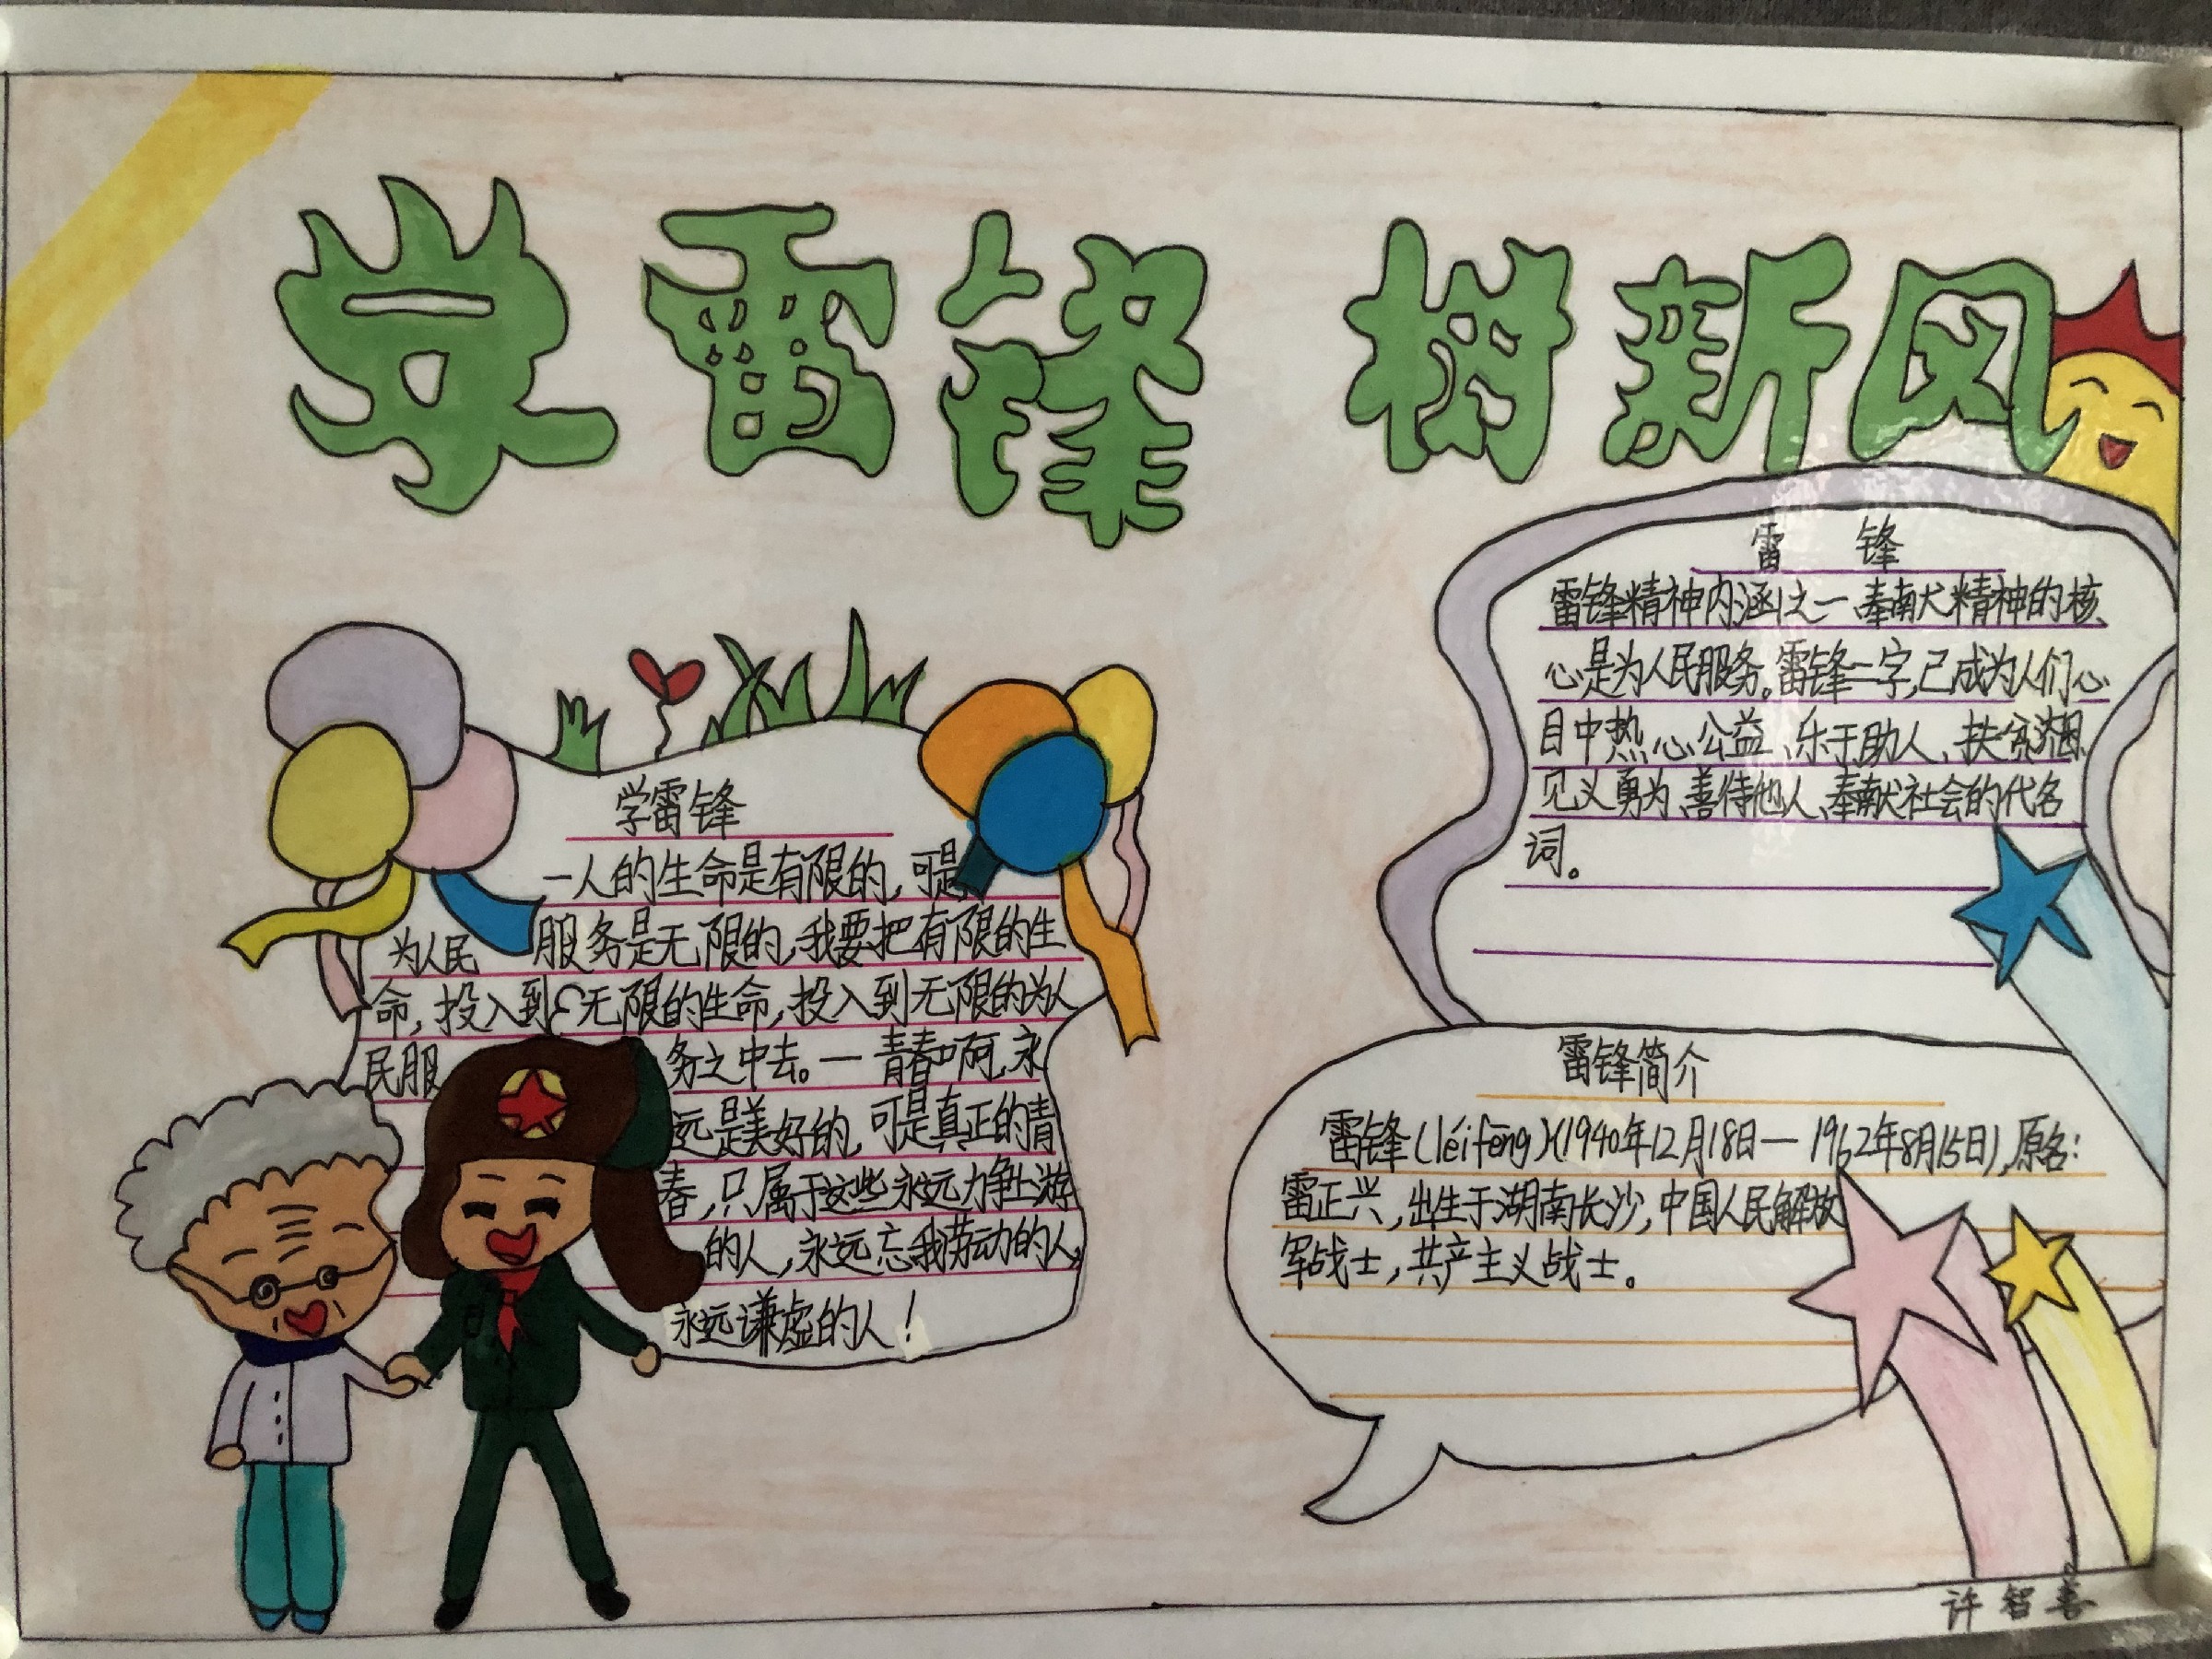 学雷锋 树新风
学雷锋
一人的生命是有限的，可是
为人民 服务是无限的，我要把有限的生
命，投入到无限的生命，投入到无限的为人
民服 务之中去。一青春啊，永
远是美好的，可是真正的青
春，只属于这些永远力争上游
的人，永远忘我劳动的人，
永远谦虚的人！
雷 锋
雷锋精神内涵之一、奉南犬精神的核
心是为人民服务。雷锋二字，己成为人们心
目中热心公益、乐于助人、扶贫济困、
见义勇为、善待他人、奉献社会的代名
词。
雷锋简介
雷锋(léifēng)(1940年12月18日—1962年8月15日)，原名：
雷正兴，出生于湖南长沙，中国人民解放
军战士，共产主义战士。
许智善